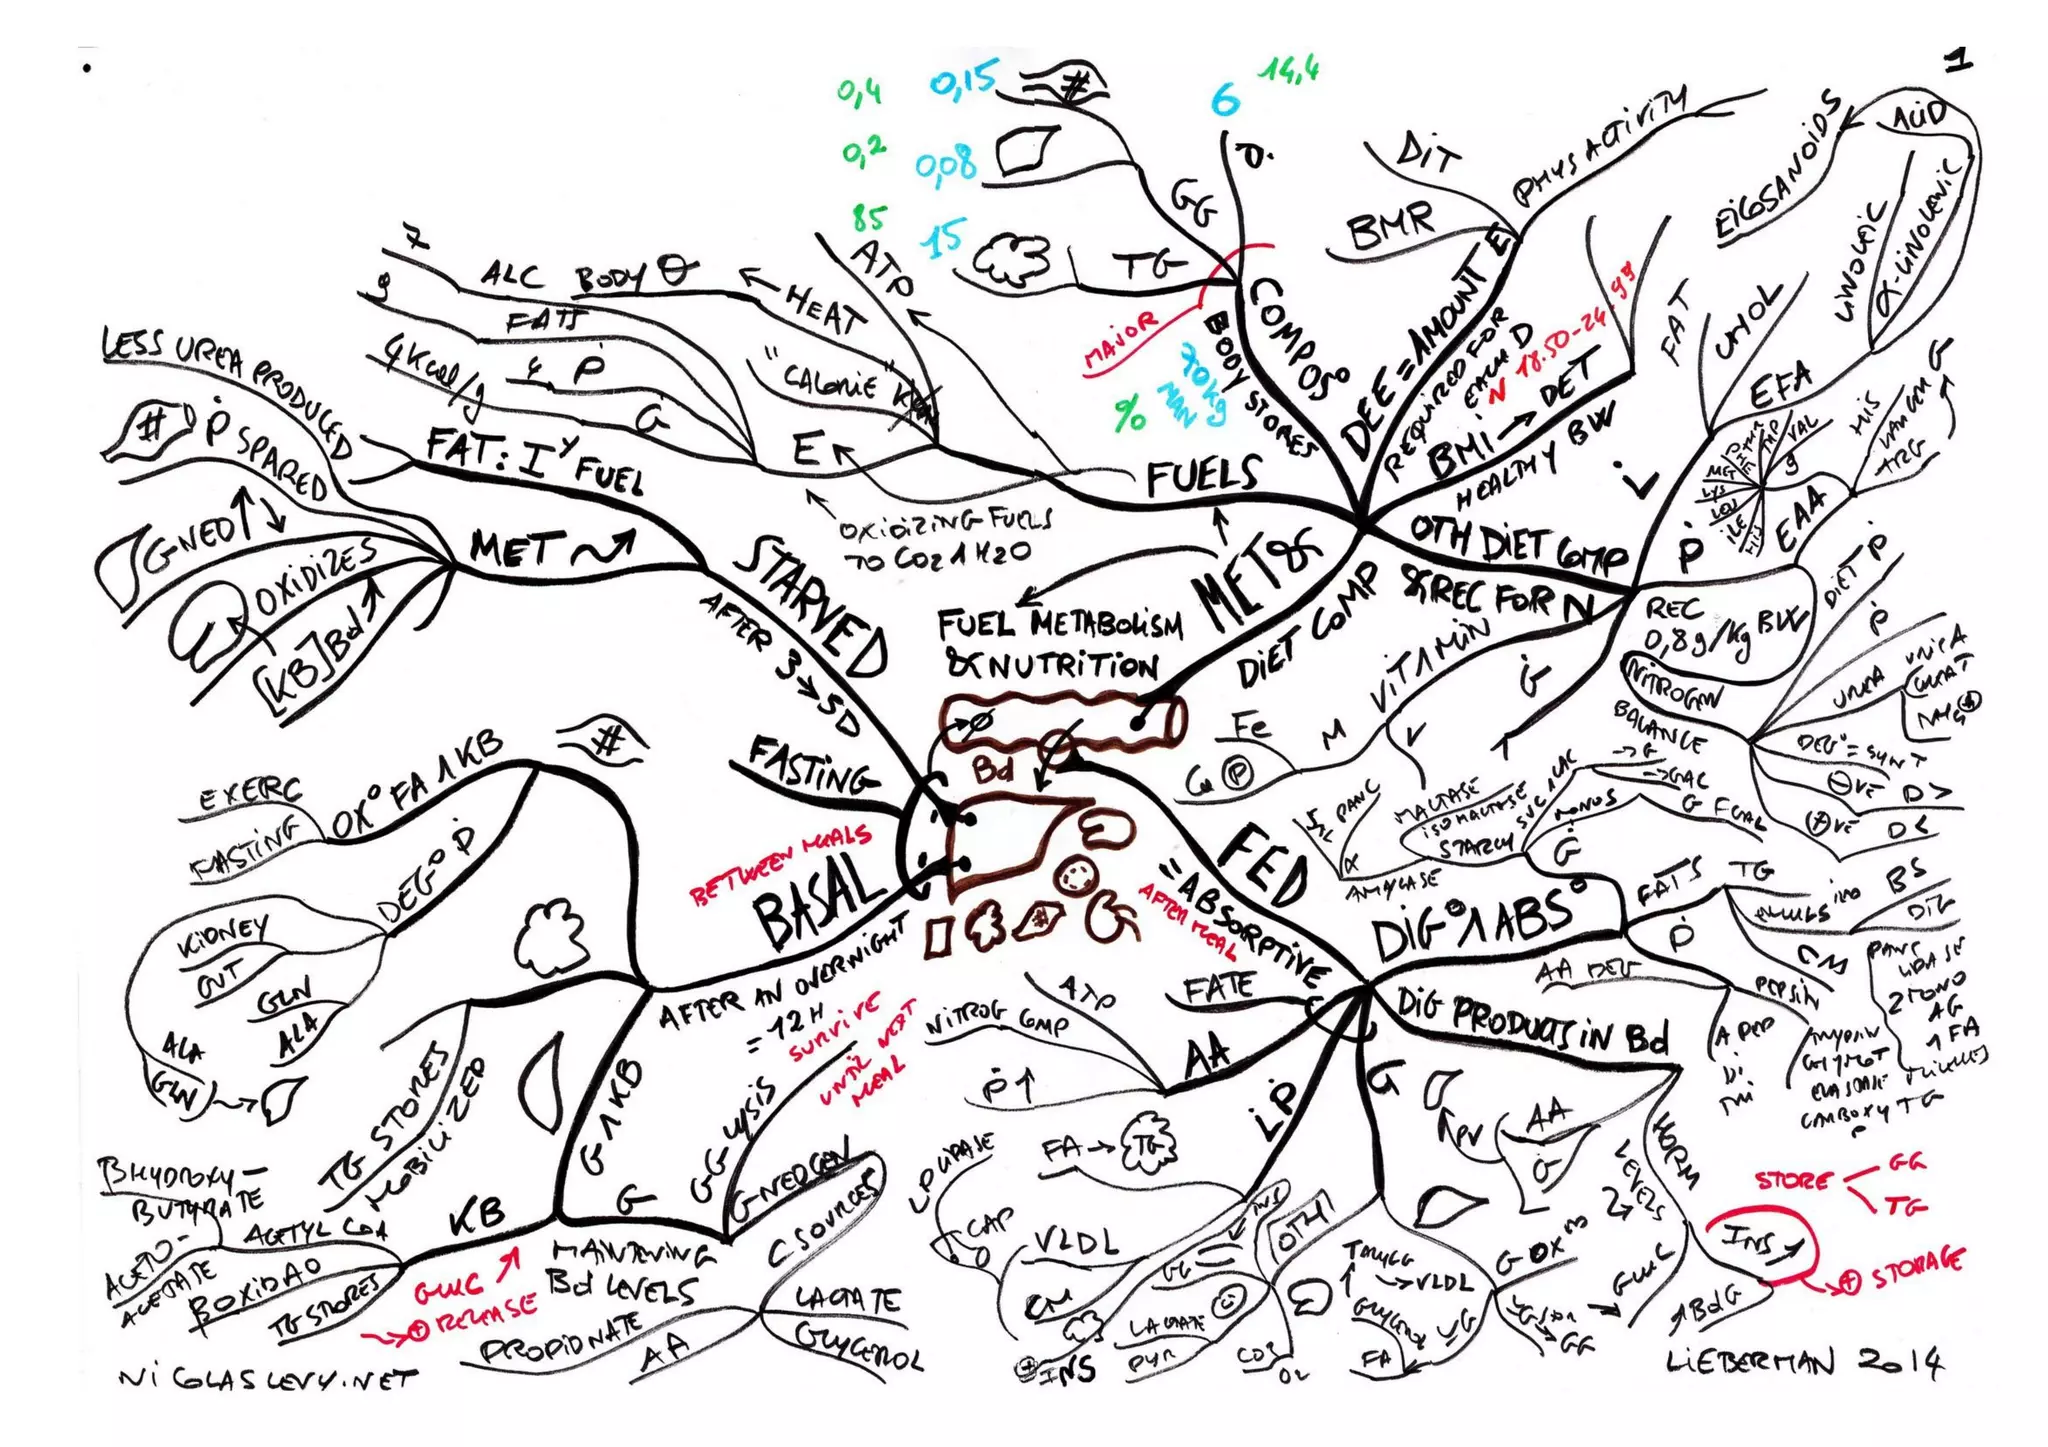 1
0,4
0,15
#
6
14,4
0,2
0,08
GG
P.
85
15
TG
ATP
MAJOR
COMPOS°
BODY STORES
%
70 kg
MAN
7
ALC
BODY θ
HEAT
9
FATS
4 Kcal/g
4
P
G
"CALORIE"
E
FUELS
OXIDIZING FUELS
TO CO2 1 H2O
DIT
BMR
PHYS ACTIVITY
DEE = AMOUNT E
REQUIRED FOR
EACH D
N 18.50-24.99
BMI → DET
HEALTHY BW
EICOSANOIDS
ACID
LINOLEIC
α-LINOLENIC
FAT
CHOL
EFA
L
HIS
ARG
VAL
TRP
MET
LYS
LEU
ILE
EAA
P
OTH DIET COMP
& REC FOR N
REC
0,8g/kg BW
NITROGEN
BALANCE
DIET P
P
UREA
DEG° = SYNT
⊖VE
D >
⊕VE
D <
VITAMIN
G
Fe
M
V
Ca P
MET&
DIET COMP
LESS UREA PRODUCED
#
P SPARED
GNEO↑
OXIDIZES
[KB]Bd↗
FAT: I^y FUEL
MET
STARVED
AFTER 3→5D
FUEL METABOLISM
& NUTRITION
Bd
FASTING
BETWEEN MEALS
BASAL
AFTER AN OVERNIGHT
= 12H
SURVIVE
UNTIL NEXT
MEAL
#
EXERC
FASTING
OX° FA 1 KB
DEG° P
KIDNEY
GUT
GLN
ALA
ALA
GLN
TG STORES
MOBILIZED
G 1 KB
GG-LYSIS
G
GNEOGEN
C SOURCES
MAINTAINING
Bd LEVELS
LACTATE
GLYCEROL
PROPIONATE
AA
KB
GLUC ↗
→⊕ RELEASE
BHYDROXY-
BUTYRATE
ACETYL COA
ACETO-
ACETATE
BOXIDAO
TG STORES
FED
= ABSORPTIVE
AFTER MEAL
#
DIG° 1 ABS°
SAL
PANC
α
AMYLASE
MALTASE
ISOMALTASE
STARCH
SUC
LAC
→G
→GAL
MONOS
G
FATS
TG
BS
DIG
CM
P
PEPSIN
AA DEG
DI
TRI
PANC
LIPASE
2 MONO
AG
1 FA
MICELLES
TG
DIG PRODUCTS IN Bd
PV
AA
G
HORM
LEVELS
GLUC
INS ↗
↑BdG
STORE
GG
TG
→⊕ STORAGE
FATE
AA
ATP
NITROG COMP
P ↑
LIP
FA → TG
LPLIPASE
CAP
VLDL
CM
⊕INS
G
INS
GG
OTH
LACTATE
PYR
CO2
O2
→VLDL
GLYCEROL
FA
G OX
→GG
NICOLASLEVY.NET
LIEBERMAN 2014